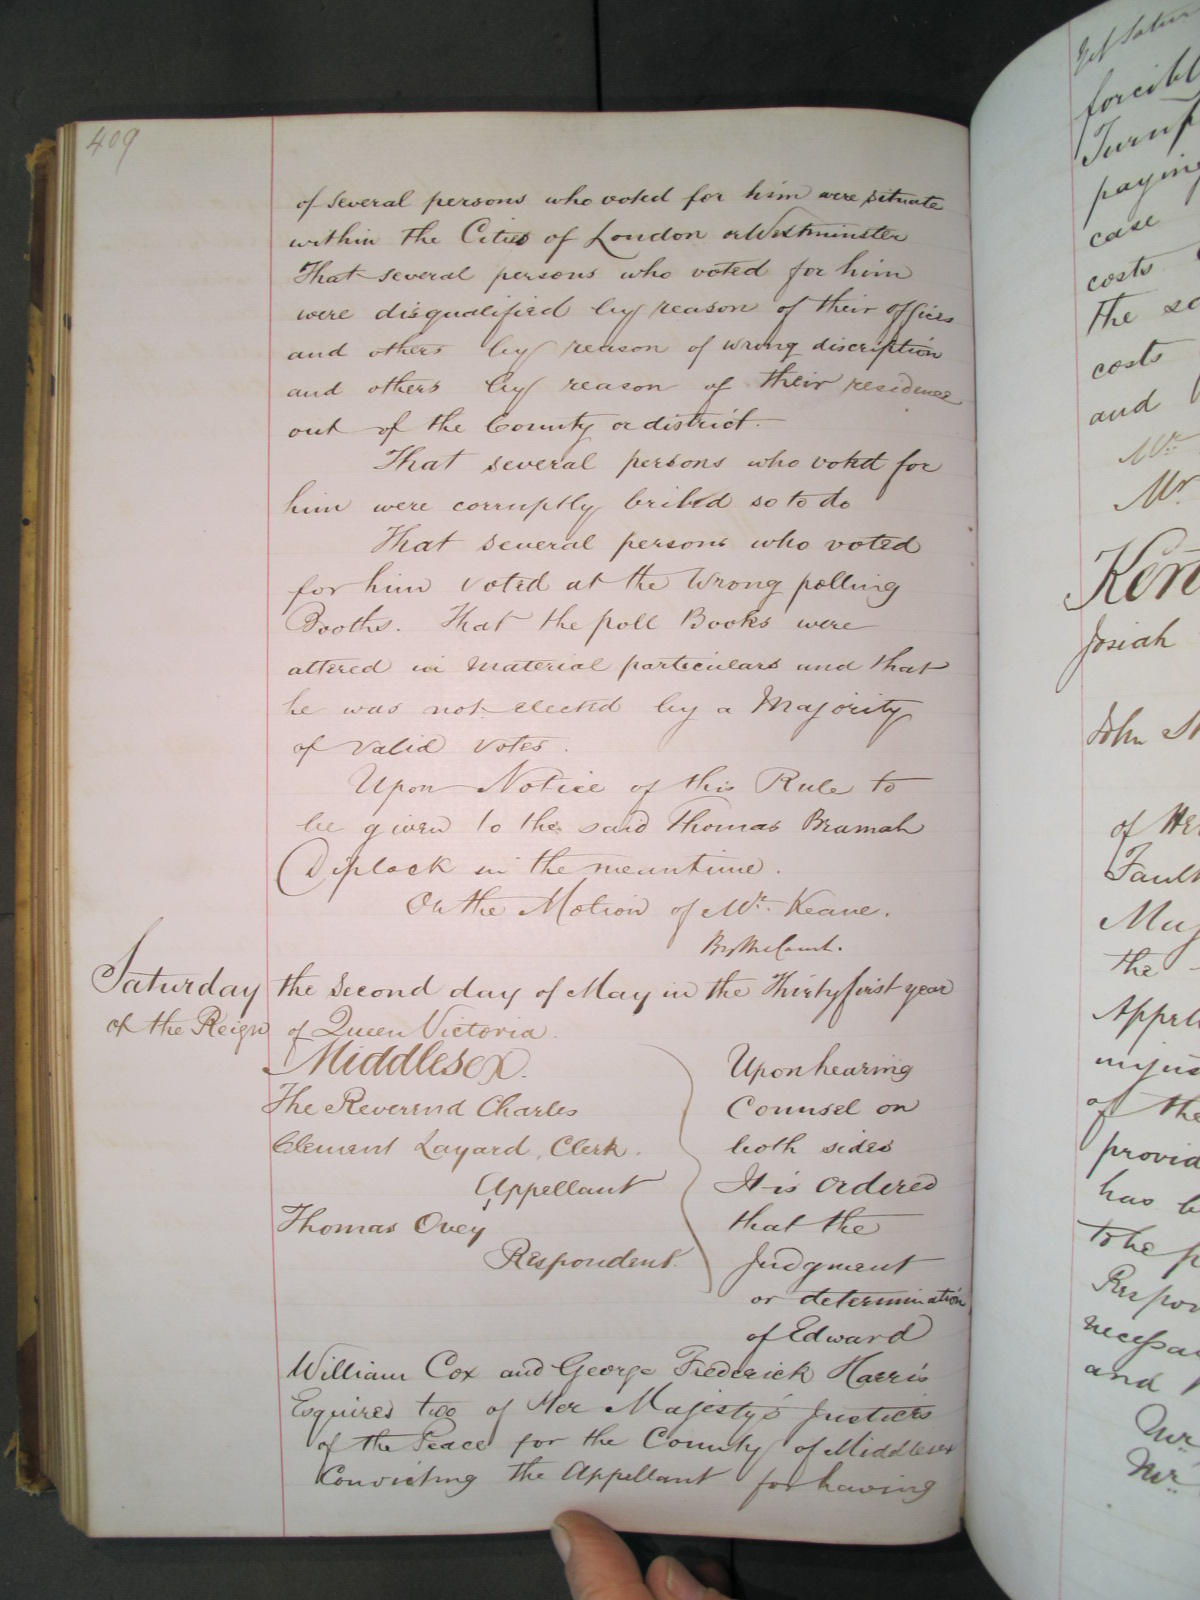 409
of several persons who voted for him were situate
within the Cities of London or Westminster
That several persons who voted for him
were disqualified by reason of their offices
and others by reason of wrong discription
and others by reason of their residence
out of the County or district.
That several persons who voted for
him were corruptly bribed so to do
That several persons who voted
for him voted at the Wrong polling
Booths. That the poll Books were
altered in material particulars and that
he was not elected by a Majority
of valid votes.
Upon Notice of this Rule to
be given to the said Thomas Bramah
Diplock in the meantime.
On the Motion of Mr. Keane.
By the Court.
Saturday the Second day of May in the Thirtyfirst year
of the Reign of Queen Victoria.
Middlesex.
The Reverend Charles
Clement Layard, Clerk.
Appellant
Thomas Ovey
Respondent.
Upon hearing
Counsel on
both sides
It is ordered
that the
Judgment
or determination
of Edward
William Cox and George Frederick Harris
Esquires two of Her Majesty's Justices
of the Peace for the County of Middlesex
Convicting the Appellant for having
forcibl
Turnp
paying
case
costs
the
costs
and
Mr
Mr
Kent
Josiah
John
of Her
Faulk
Maj
the
Appell
of the
provid
has b
to be p
Respon
necessa
and
Mr
Mr